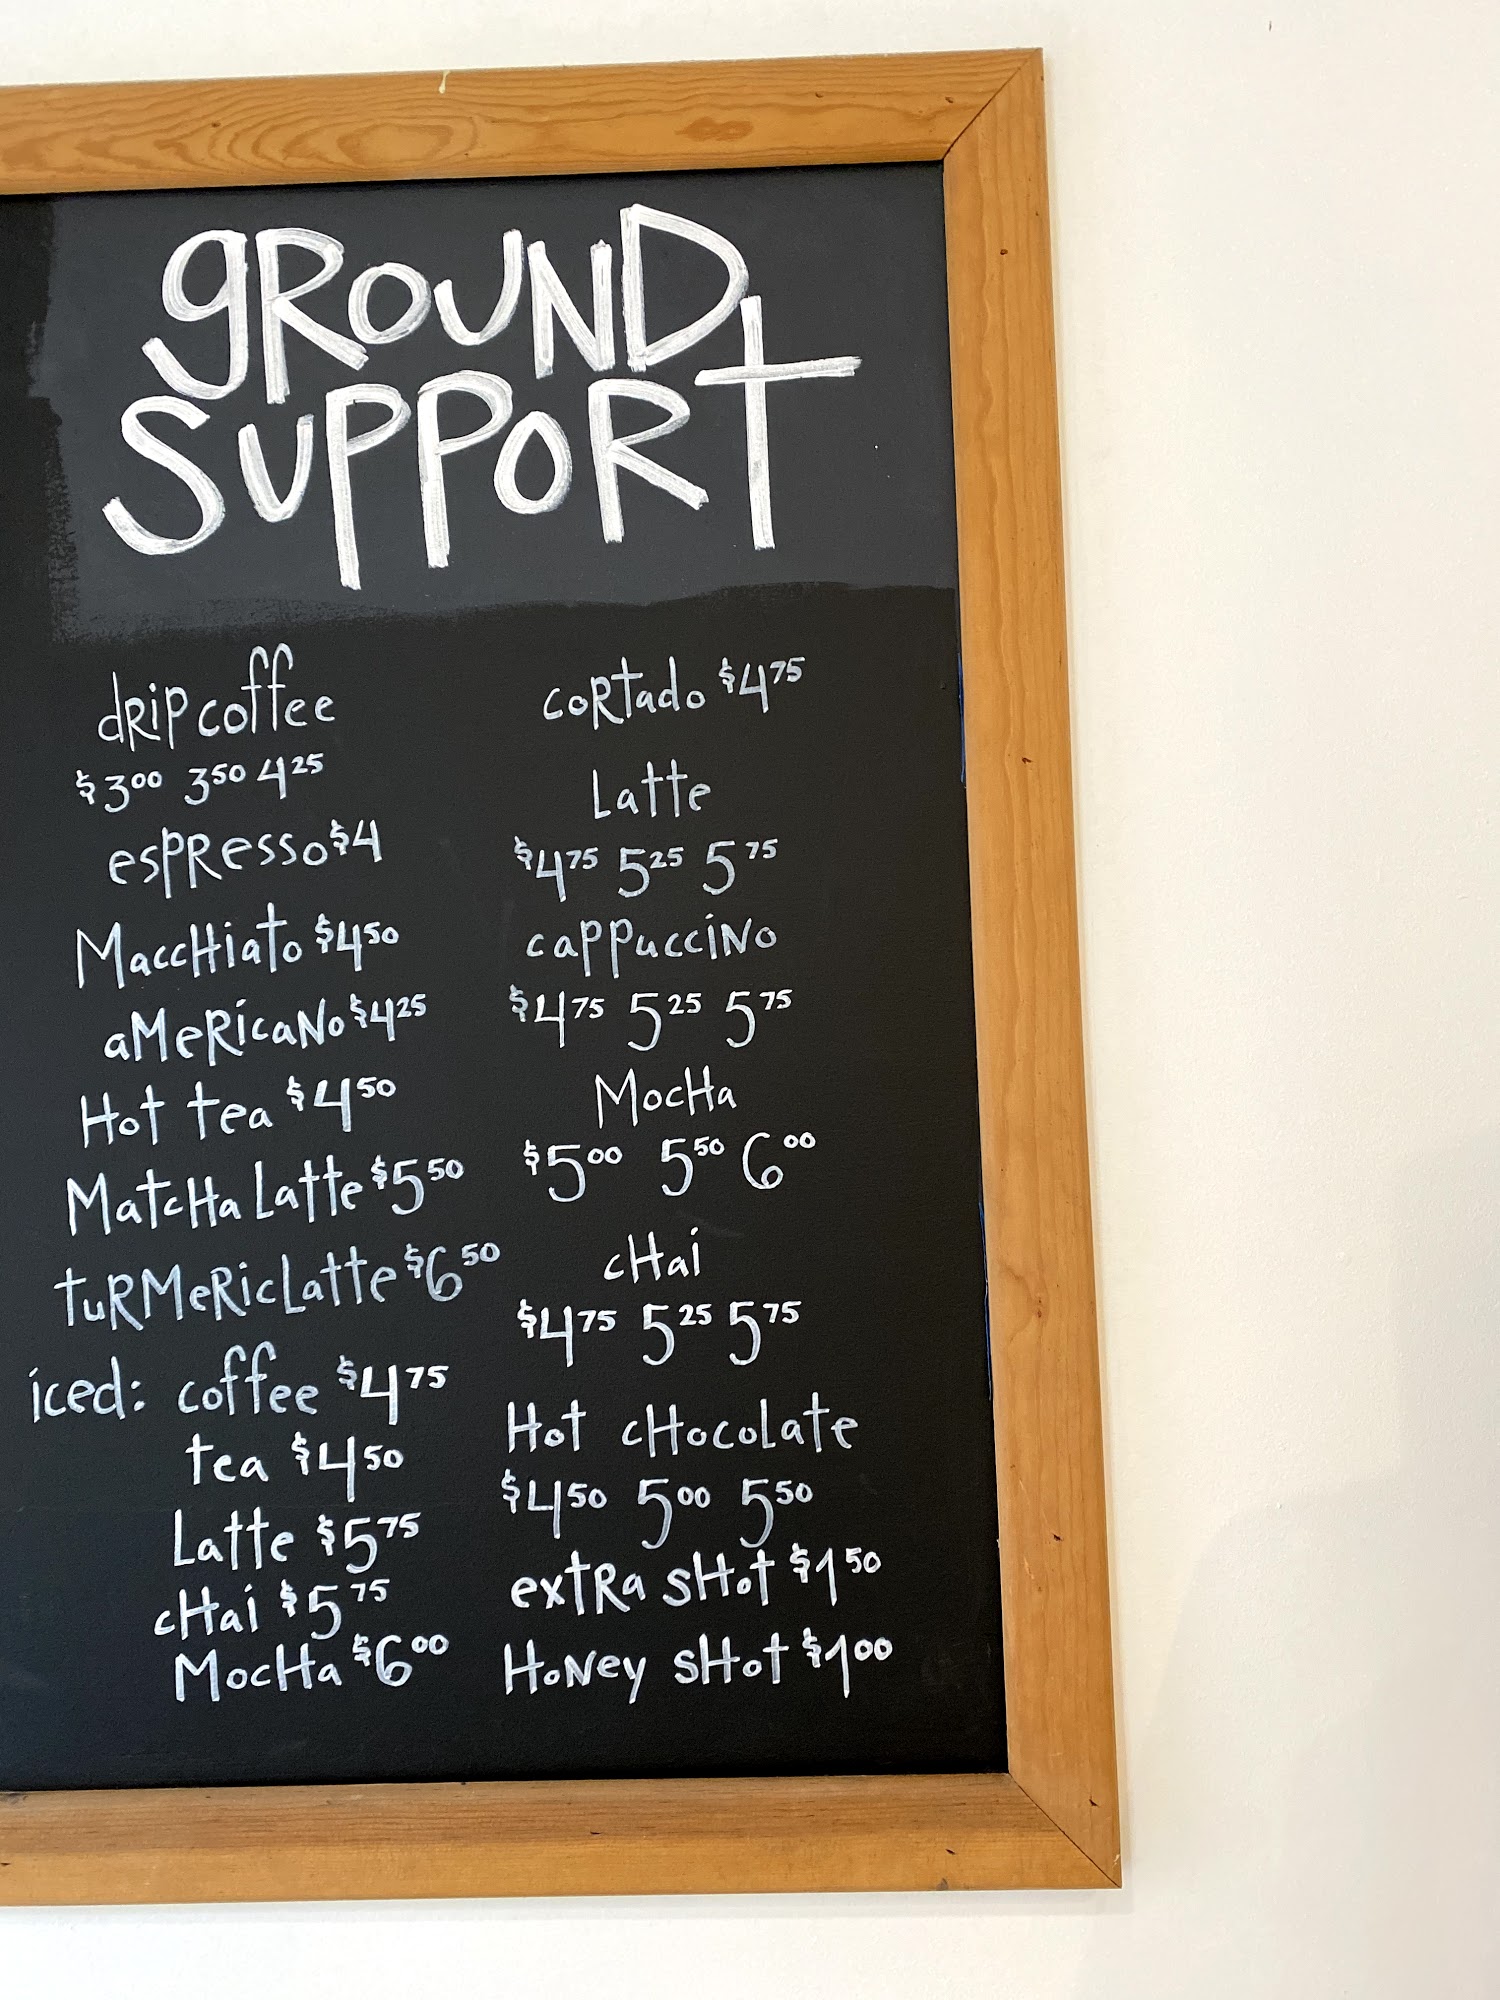 gROUND
SUPPORT
dRip coffee
$3.00 3.50 4.25
espResso $4
MaccHiato $4.50
aMeRicaNo $4.25
Hot tea $4.50
MatcHa Latte $5.50
tuRMeRic Latte $6.50
iced: coffee $4.75
tea $4.50
Latte $5.75
cHai $5.75
MocHa $6.00
coRtado $4.75
Latte
$4.75 5.25 5.75
cappucciNo
$4.75 5.25 5.75
MocHa
$5.00 5.50 6.00
cHai
$4.75 5.25 5.75
Hot cHocoLate
$4.50 5.00 5.50
extRa sHot $1.50
HoNey sHot $1.00